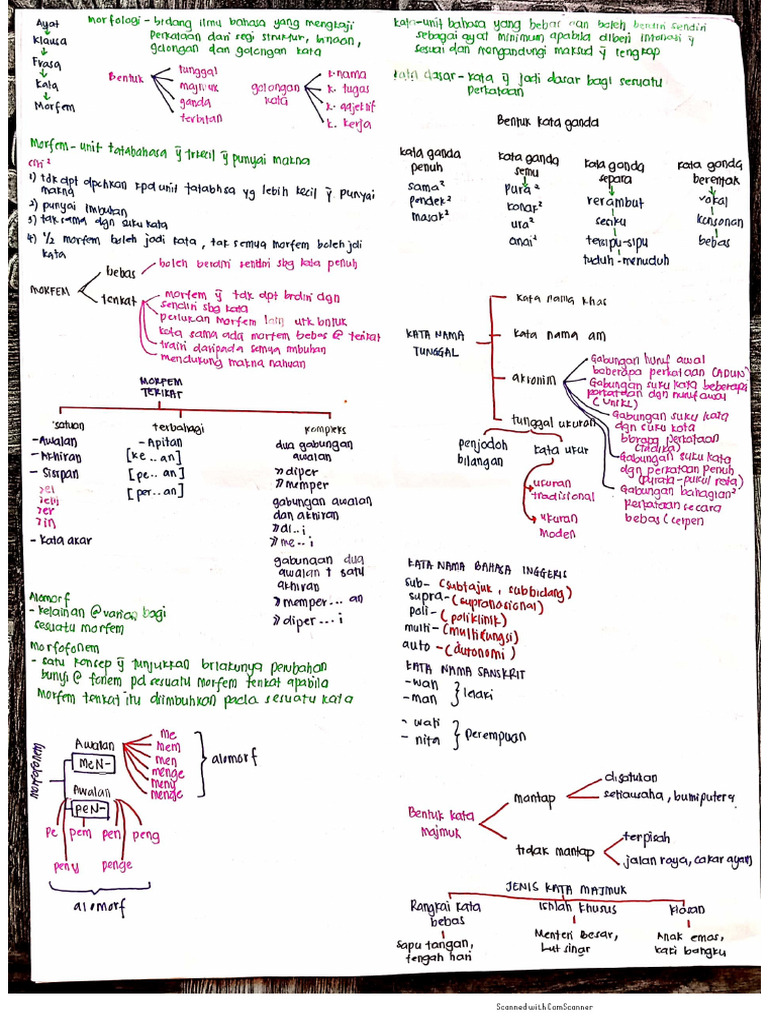 Ayat
Klausa
Frasa
Kata
Morfem
Morfologi - bidang ilmu bahasa yang mengkaji
Perkataan dari segi struktur, binaan,
golongan dan golongan kata
Bentuk
tunggal
majmuk
ganda
terbitan
golongan
kata
k. nama
k. tugas
k. adjektif
k. kerja
Morfem - unit tatabahasa ỹ trkecil ỹ punyai makna
ciri²
1) tdk dpt dpchkan kpd unit tatabhsa yg lebih kecil ỹ punyai
makna
2) punyai imbuhan
3) tak sama dgn suku kata
4) ½ morfem boleh jadi kata, tak semua morfem boleh jdi
kata
MORFEM
bebas
boleh berdiri sendiri sbg kata penuh
terikat
morfem ỹ tdk dpt brdiri dgn
sendiri sbg kata
perlukan morfem lain utk bntuk
kata sama ada morfem bebas @ terikat
trdiri daripada semua imbuhan
mendukung makna nahuan
MORFEM
TERIKAT
satuan
- Awalan
- Akhiran
- Sisipan
>el
>em
>er
>in
- kata akar
terbahagi
- Apitan
[ke .. an]
[pe .. an]
[per .. an]
kompleks
dua gabungan
awalan
» diper
» memper
gabungan awalan
dan akhiran
» di .. i
» me .. i
gabungan dua
awalan + satu
akhiran
» memper ... an
» diper ... i
Alomorf
- kelainan @ varian bagi
sesuatu morfem
Morfofonem
- satu konsep ỹ tunjukkan brlakunya perubahan
bunyi @ fonem pd sesuatu morfem terikat apabila
Morfem terikat itu diimbuhkan pada sesuatu kata
Awalan
MeN-
me
mem
men
menge
meny
alomorf
Awalan
PeN-
pe
pem
pen
peng
peny
penge
alomorf
kata - unit bahasa yang bebas dan boleh berdiri sendiri
sebagai ayat minimum apabila diberi intonasi ỹ
sesuai dan mengandungi maksud ỹ lengkap
kata dasar - kata ỹ jadi dasar bagi sesuatu
perkataan
Bentuk kata ganda
kata ganda
penuh
sama²
pendek²
masak²
kata ganda
semu
pura²
konar²
ura²
anai²
kata ganda
separa
rerambut
sesiku
tersipu-sipu
tuduh-menuduh
kata ganda
berentak
vokal
konsonan
bebas
KATA NAMA
TUNGGAL
kata nama khas
kata nama am
akronim
Gabungan huruf awal
beberapa perkataan (ADUN)
Gabungan suku kata beberapa
perkataan dgn huruf awal
(UniKL)
Gabungan suku kata
dgn suku kata
bbrapa perkataan
Gabungan suku kata
dgn perkataan penuh
(purata - pukul rata)
Gabungan bahagian²
perkataan secara
bebas (cerpen
tunggal ukuran
penjodoh
bilangan
kata ukur
ukuran
tradisional
ukuran
moden
KATA NAMA BAHASA INGGERIS
sub- (subtajuk, subbidang)
supra- (supranasional)
poli- (poliklinik)
multi- (multifungsi)
auto- (autonomi)
KATA NAMA SANSKRIT
- wan
- man
lelaki
- wati
- nita
Perempuan
Bentuk kata
majmuk
mantap
disatukan
setiausaha, bumiputera
tidak mantap
terpisah
jalan raya, cakar ayam
JENIS KATA MAJMUK
Rangkai kata
bebas
Sapu tangan,
tengah hari
Istilah khusus
Menteri Besar,
Lut sinar
kiasan
Anak emas,
kaki bangku
Scanned with CamScanner